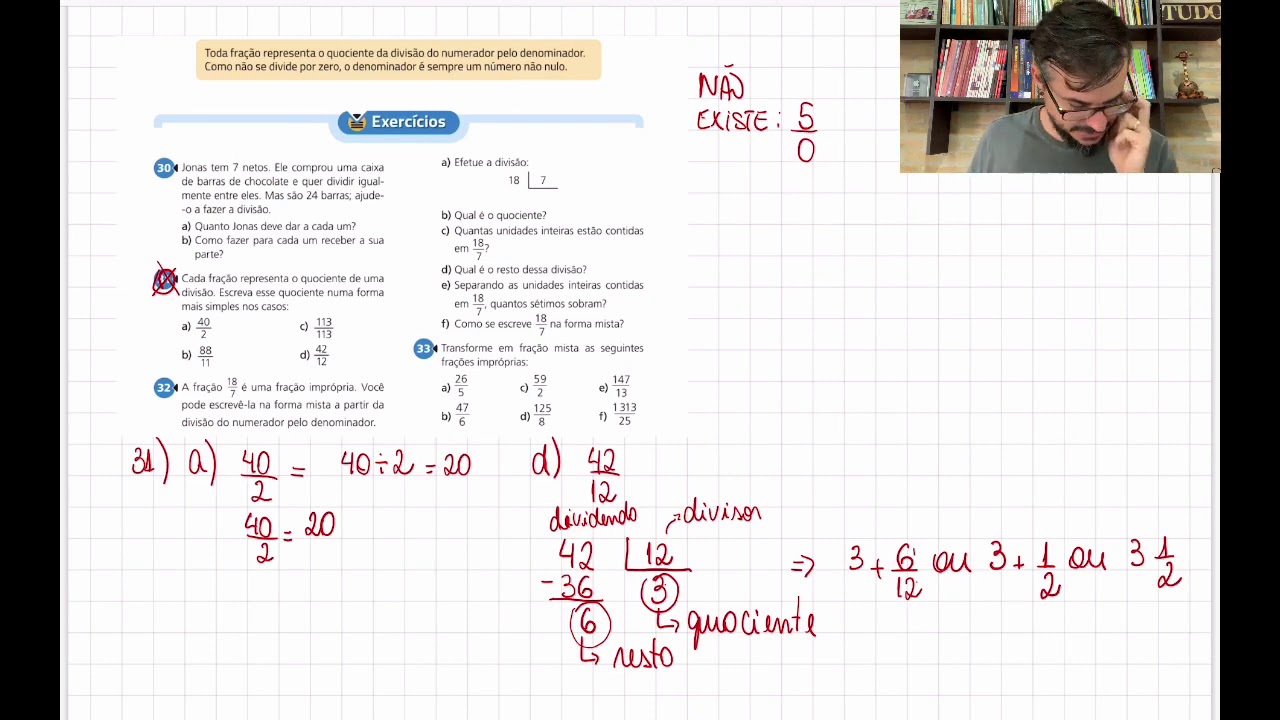 Toda fração representa o quociente da divisão do numerador pelo denominador.
Como não se divide por zero, o denominador é sempre um número não nulo.
Exercícios
30 Jonas tem 7 netos. Ele comprou uma caixa
de barras de chocolate e quer dividir igual-
mente entre eles. Mas são 24 barras; ajude-
-o a fazer a divisão.
a) Quanto Jonas deve dar a cada um?
b) Como fazer para cada um receber a sua
parte?
Cada fração representa o quociente de uma
divisão. Escreva esse quociente numa forma
mais simples nos casos:
a) 40/2 c) 113/113
b) 88/11 d) 42/12
32 A fração 18/7 é uma fração imprópria. Você
pode escrevê-la na forma mista a partir da
divisão do numerador pelo denominador.
a) Efetue a divisão:
18 7
b) Qual é o quociente?
c) Quantas unidades inteiras estão contidas
em 18/7?
d) Qual é o resto dessa divisão?
e) Separando as unidades inteiras contidas
em 18/7, quantos sétimos sobram?
f) Como se escreve 18/7 na forma mista?
33 Transforme em fração mista as seguintes
frações impróprias:
a) 26/5 c) 59/2 e) 147/13
b) 47/6 d) 125/8 f) 1313/25
NÃO
EXISTE: 5/0
TUDO
31) a) 40/2 = 40÷2 = 20
40/2 = 20
d) 42/12
dividendo divisor
42 12
-36 3
6 quociente
resto
⇒ 3 + 6/12 ou 3 + 1/2 ou 3 1/2